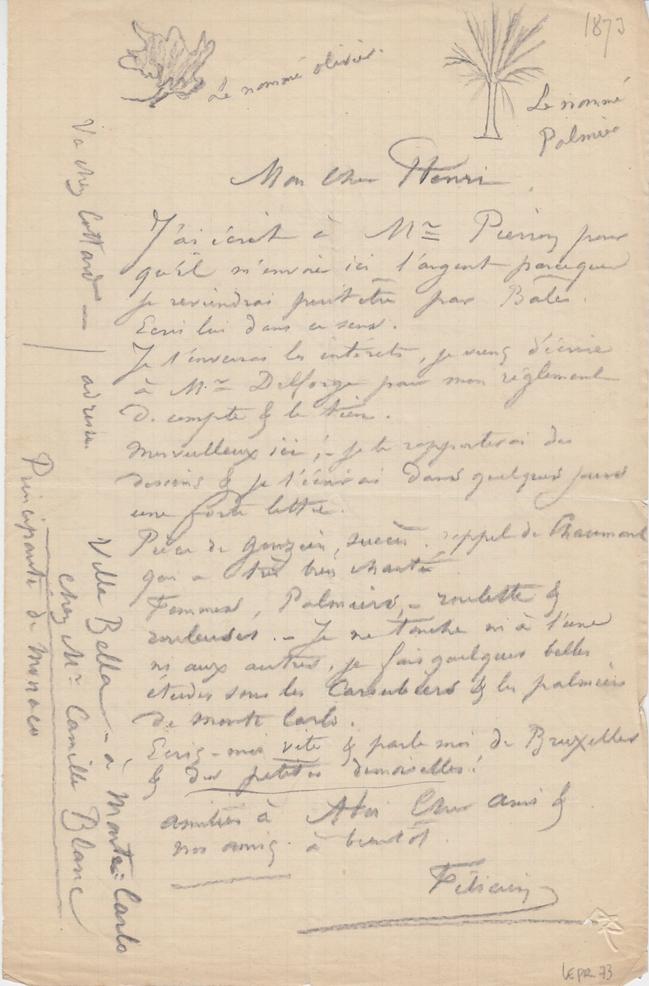 1873
Le nommé olivier.
Le nommé
Palmier
Mon cher Henri,
J'ai écrit à Mr Pierron pour
qu'il m'envoie ici l'argent parceque
je reviendrai peut être par Bâle.
Ecris lui dans ce sens.
Je t'enverrai les intérêts, je viens d'écrire
à Mr Delforge pour mon réglement
de compte & le tien.
Merveilleux ici ! – je te rapporterai des
dessins & je t'écrirai dans quelques jours
une forte lettre.
Pièce de Gouzien, succès. rappel de Chaumont
qui a très bien chanté.
Femmes, Palmiers, – roulette &
rouleuses. – Je ne touche ni à l'une
ni aux autres, je fais quelques belles
études sous les Caroubiers & les palmiers
de Monte Carlo.
Ecris-moi vite & parle moi de Bruxelles
& des petites demoiselles !
amitiés à toi Cher ami &
nos amis. à bientôt.
Félicien
Va chez Cottard –
adresse
Villa Bella – à Monte-Carlo
chez Mr Camille Blanc
Principauté de Monaco
LEPR 73